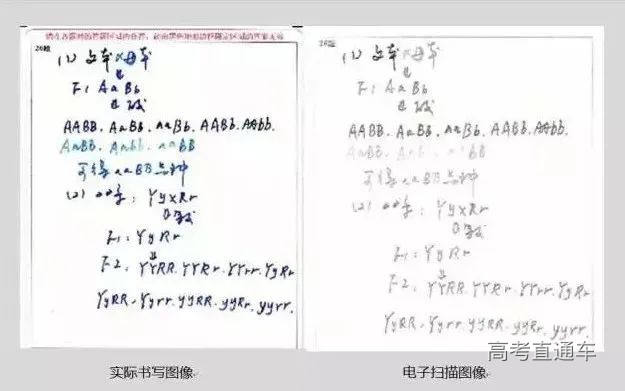 请在各题目的答题区域内作答，超出黑色矩形边框限定区域的答案无效
(1) 父本 × 母本
↓
F1 AaBb
AABB. AaBB. aaBb. AABb. AAbb.
AaBB. Aabb. aaBB
可得aaBB品种
(2) : YyxRr
F1: YyRr
F2. YYRR. YYRr. YYrr. YyRr
YyRR. Yyrr. yyRR. yyRr. yyrr.
(1) 父本 × 母本
↓
F1 AaBb
AABB. AaBB. aaBb. AABb. AAbb.
AaBB. Aabb. BB
可得aaBB品种
(2) : YyxRr
F1: YyRr
F2. YYRR. YYRr. YYrr. YyRr
YyRR. Yyrr. yyRR. yyRr. yyrr.
高考直通车
实际书写图像
电子扫描图像